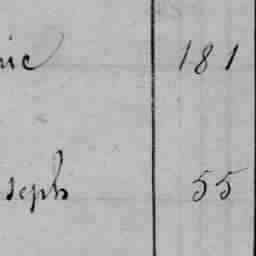 nie 181
seph 55